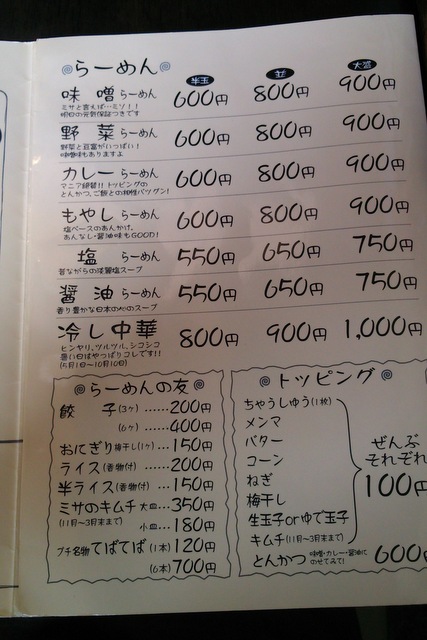 らーめん
半玉 並 大盛
味噌らーめん 600円 800円 900円
ミサと言えば…ミソ!!
明日の元気保証つきです
野菜らーめん 600円 800円 900円
野菜と豆富がいっぱい!
味噌味もありますよ
カレーらーめん 600円 800円 900円
マニア絶賛!!トッピングの
とんかつ、ご飯との相性バツグン!
もやしらーめん 600円 800円 900円
塩ベースのあんかけ。
あんなし・醤油味もGOOD!
塩らーめん 550円 650円 750円
昔ながらの淡麗塩スープ
醤油らーめん 550円 650円 750円
香り豊かな日本の心のスープ
冷し中華 800円 900円 1,000円
ヒンヤリ、ツルツル、シコシコ
暑い日はやっぱりコレです!!
(5月1日〜10月10日)
らーめんの友
餃子(3ヶ)……200円
(6ヶ)……400円
おにぎり梅干し(1ヶ)…150円
ライス(香物付)……200円
半ライス(香物付)…150円
ミサのキムチ 大皿…350円
(11月〜3月末まで) 小皿…180円
プチ名物てばてば(1本)120円
(6本)700円
トッピング
ちゃうしゅう(1枚)
メンマ
バター
コーン
ねぎ
梅干し
生玉子orゆで玉子
キムチ(11月〜3月末まで)
ぜんぶ
それぞれ
100円
とんかつ 味噌・カレー・醤油に
のせてみて! 600円